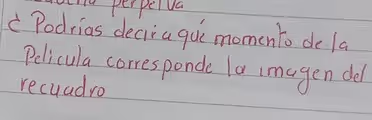 perpetva
¿ Podrias decir a qué momento de la
Pelicula corresponde la imagen del
recuadro